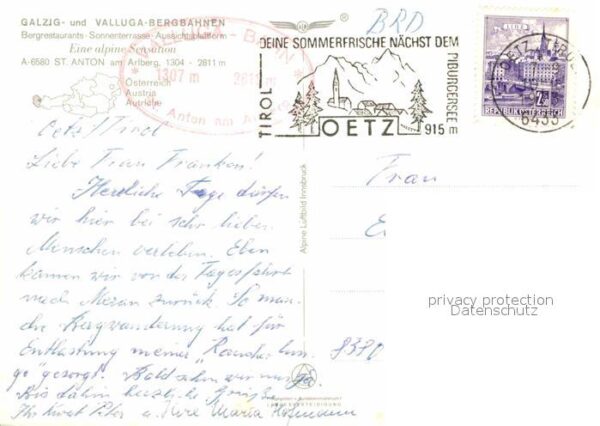 GALZIG- und VALLUGA-BERGBAHNEN
Bergrestaurants - Sonnenterrasse - Aussichtsplattform
Eine alpine Sensation
A-6580 ST. ANTON am Arlberg, 1304 - 2811 m
Österreich
Austria
Autriche
GALZIG - BAHN
1307 m
St. Anton am Arlberg
BRD
DEINE SOMMERFRISCHE NÄCHST DEM
PIBURGERSEE
TIROL
OETZ
915 m
OETZ, TIROL
6433
LINZ
REPUBLIK ÖSTERREICH
Oetz/Tirol
Liebe Frau Franken!
Herrliche Tage dürfen
wir hier bei sehr lieben
Menschen verleben. Eben
kamen wir von der Tagesfahrt
nach Meran zurück. So man-
che Bergwanderung hat für
Entlastung meiner "Raucherlun-
ge" gesorgt. Bald sehen wir uns
Bis dahin herzliche Grüße
Ihr Kurat u. Ihre Maria Hofmann
Frau
E
8370
Alpine Luftbild Innsbruck
privacy protection
Datenschutz
LANDESVERTEIDIGUNG